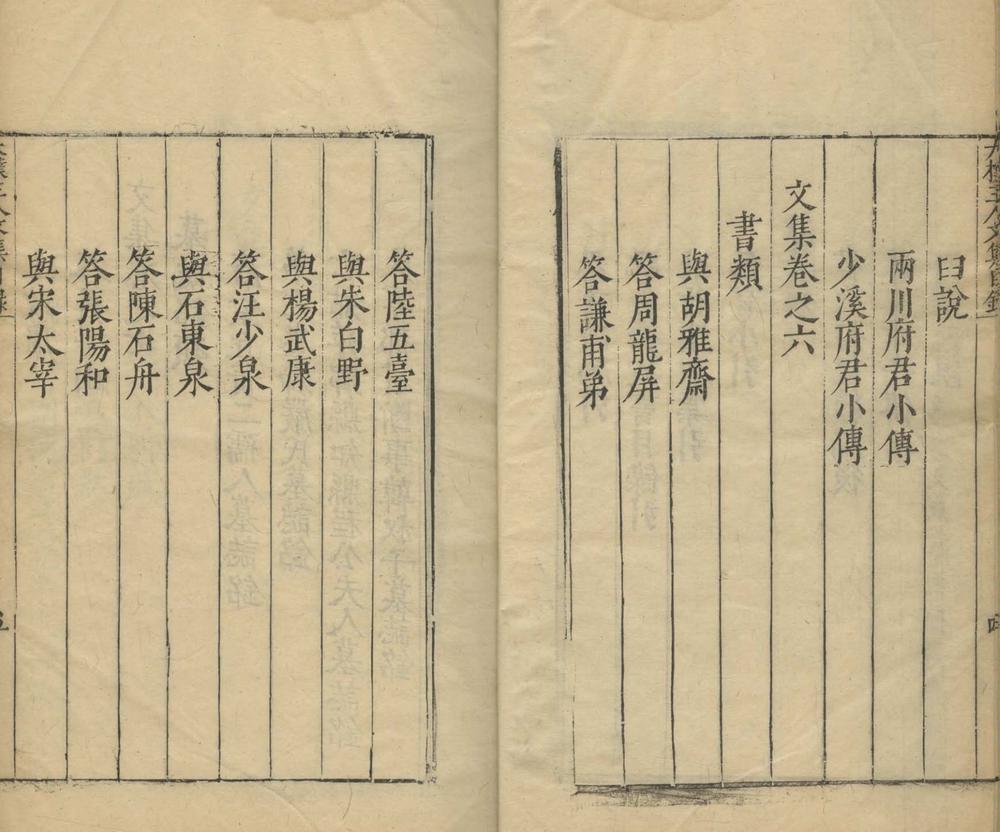 臼說
兩川府君小傳
少溪府君小傳
文集卷之六
書類
與胡雅齋
答周龍屏
答謙甫弟
答陸五臺
與朱白野
與楊武康
答汪少泉
與石東泉
答陳石舟
答張陽和
與宋太宰